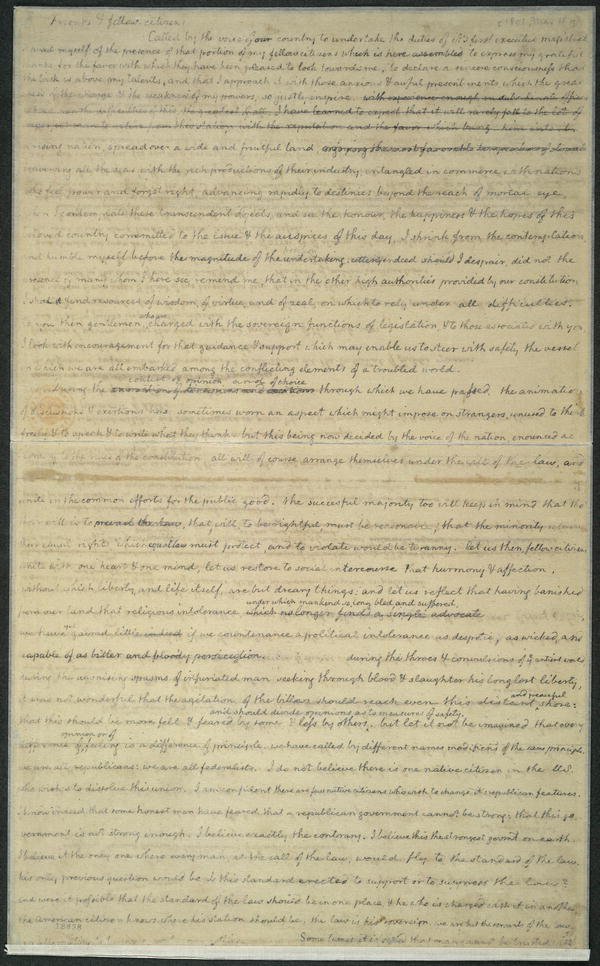 Friends & fellow citizens
Called by the voice of our country to undertake the duties of it's first executive magistrate
avail myself of the presence of that portion of my fellow citizens which is here assembled to express my grateful
thanks for the favor with which they have been pleased to look towards me, to declare a sincere consciousness that
the task is above my talents, and that I approach it with those anxious & awful presentiments which the great
ness of the charge & the weakness of my powers, so justly inspire.
I have learned to expect that it will rarely fall to the lot of
retire from this station with the reputation and the favor which bring him into it.
rising nation, spread over a wide and fruitful land
the seas with the rich productions of their industry, entangled in commerce with nations
who feel power and forget right, advancing rapidly to destinies beyond the reach of mortal eye
when I contemplate these transcendent objects, and see the honour, the happiness & the hopes of this
beloved country committed to the issue & the auspices of this day, I shrink from the contemplation
and humble myself before the magnitude of the undertaking. utterly indeed should I despair, did not the
presence of many whom I here see, remind me, that in the other high authorities provided by our constitution
I shall find resources of wisdom, of virtue, and of zeal, on which to rely under all difficulties.
to you then gentlemen, charged with the sovereign functions of legislation & to those associated with you
I look with encouragement for that guidance & support which may enable us to steer with safety, the vessel
in which we are all embarked among the conflicting elements of a troubled world.
contest of opinion
During the through which we have passed, the animation
of discussions & exertions has sometimes worn an aspect which might impose on strangers, unused to think
freely & to speak & to write what they think. but this being now decided by the voice of the nation, enounced ac
to the rules of the constitution all will of course arrange themselves under the will of the law, and
unite in the common efforts for the public good. the successful majority too will keep in mind that tho
their will is to prevail that will, to be rightful must be reasonable; that the minority
their equal rights which equal laws must protect, and to violate would be tyranny. Let us then, fellow citizens
unite with one heart & one mind, let us restore to social intercourse that harmony & affection,
without which liberty, and life itself, are but dreary things: and let us reflect that having banished
under which mankind so long bled and suffered,
from our land that religious intolerance which no longer finds a single advocate
we have gained little indeed if we countenance a political intolerance as despotic, as wicked, and
capable of as bitter and bloody persecution. during the throes & convulsions of the antient world
during the agonising spasms of infuriated man seeking through blood & slaughter his long lost liberty,
and peaceful
it was not wonderful that the agitation of the billows should reach even this distant shore:
and should divide opinions as to measures of safety.
that this should be more felt & feared by some & less by others, but let it not be imagined that every
opinion or of
difference of feeling is a difference of principle. we have called by different names modificns of the same principle.
we are all republicans: we are all federalists. I do not believe there is one native citizen in the U.S.
who wishes to dissolve this union. I am confident there are few native citizens who wish to change it's republican features.
I know indeed that some honest men have feared that a republican government cannot be strong; that this go
vernment is not strong enough. I believe exactly the contrary. I believe this the strongest governmt on earth.
I believe it the only one where every man, at the call of the law, would fly to the standard of the law.
his only previous question would be Is this standard erected to support or to suppress the laws?
and were it possible that the standard of the law should be in one place & he who is charged with it in another
the American citizen knows where his station should be. the law is his sovereign. we are but the servants of the law.
18838
Some times it is said that man cannot be trusted